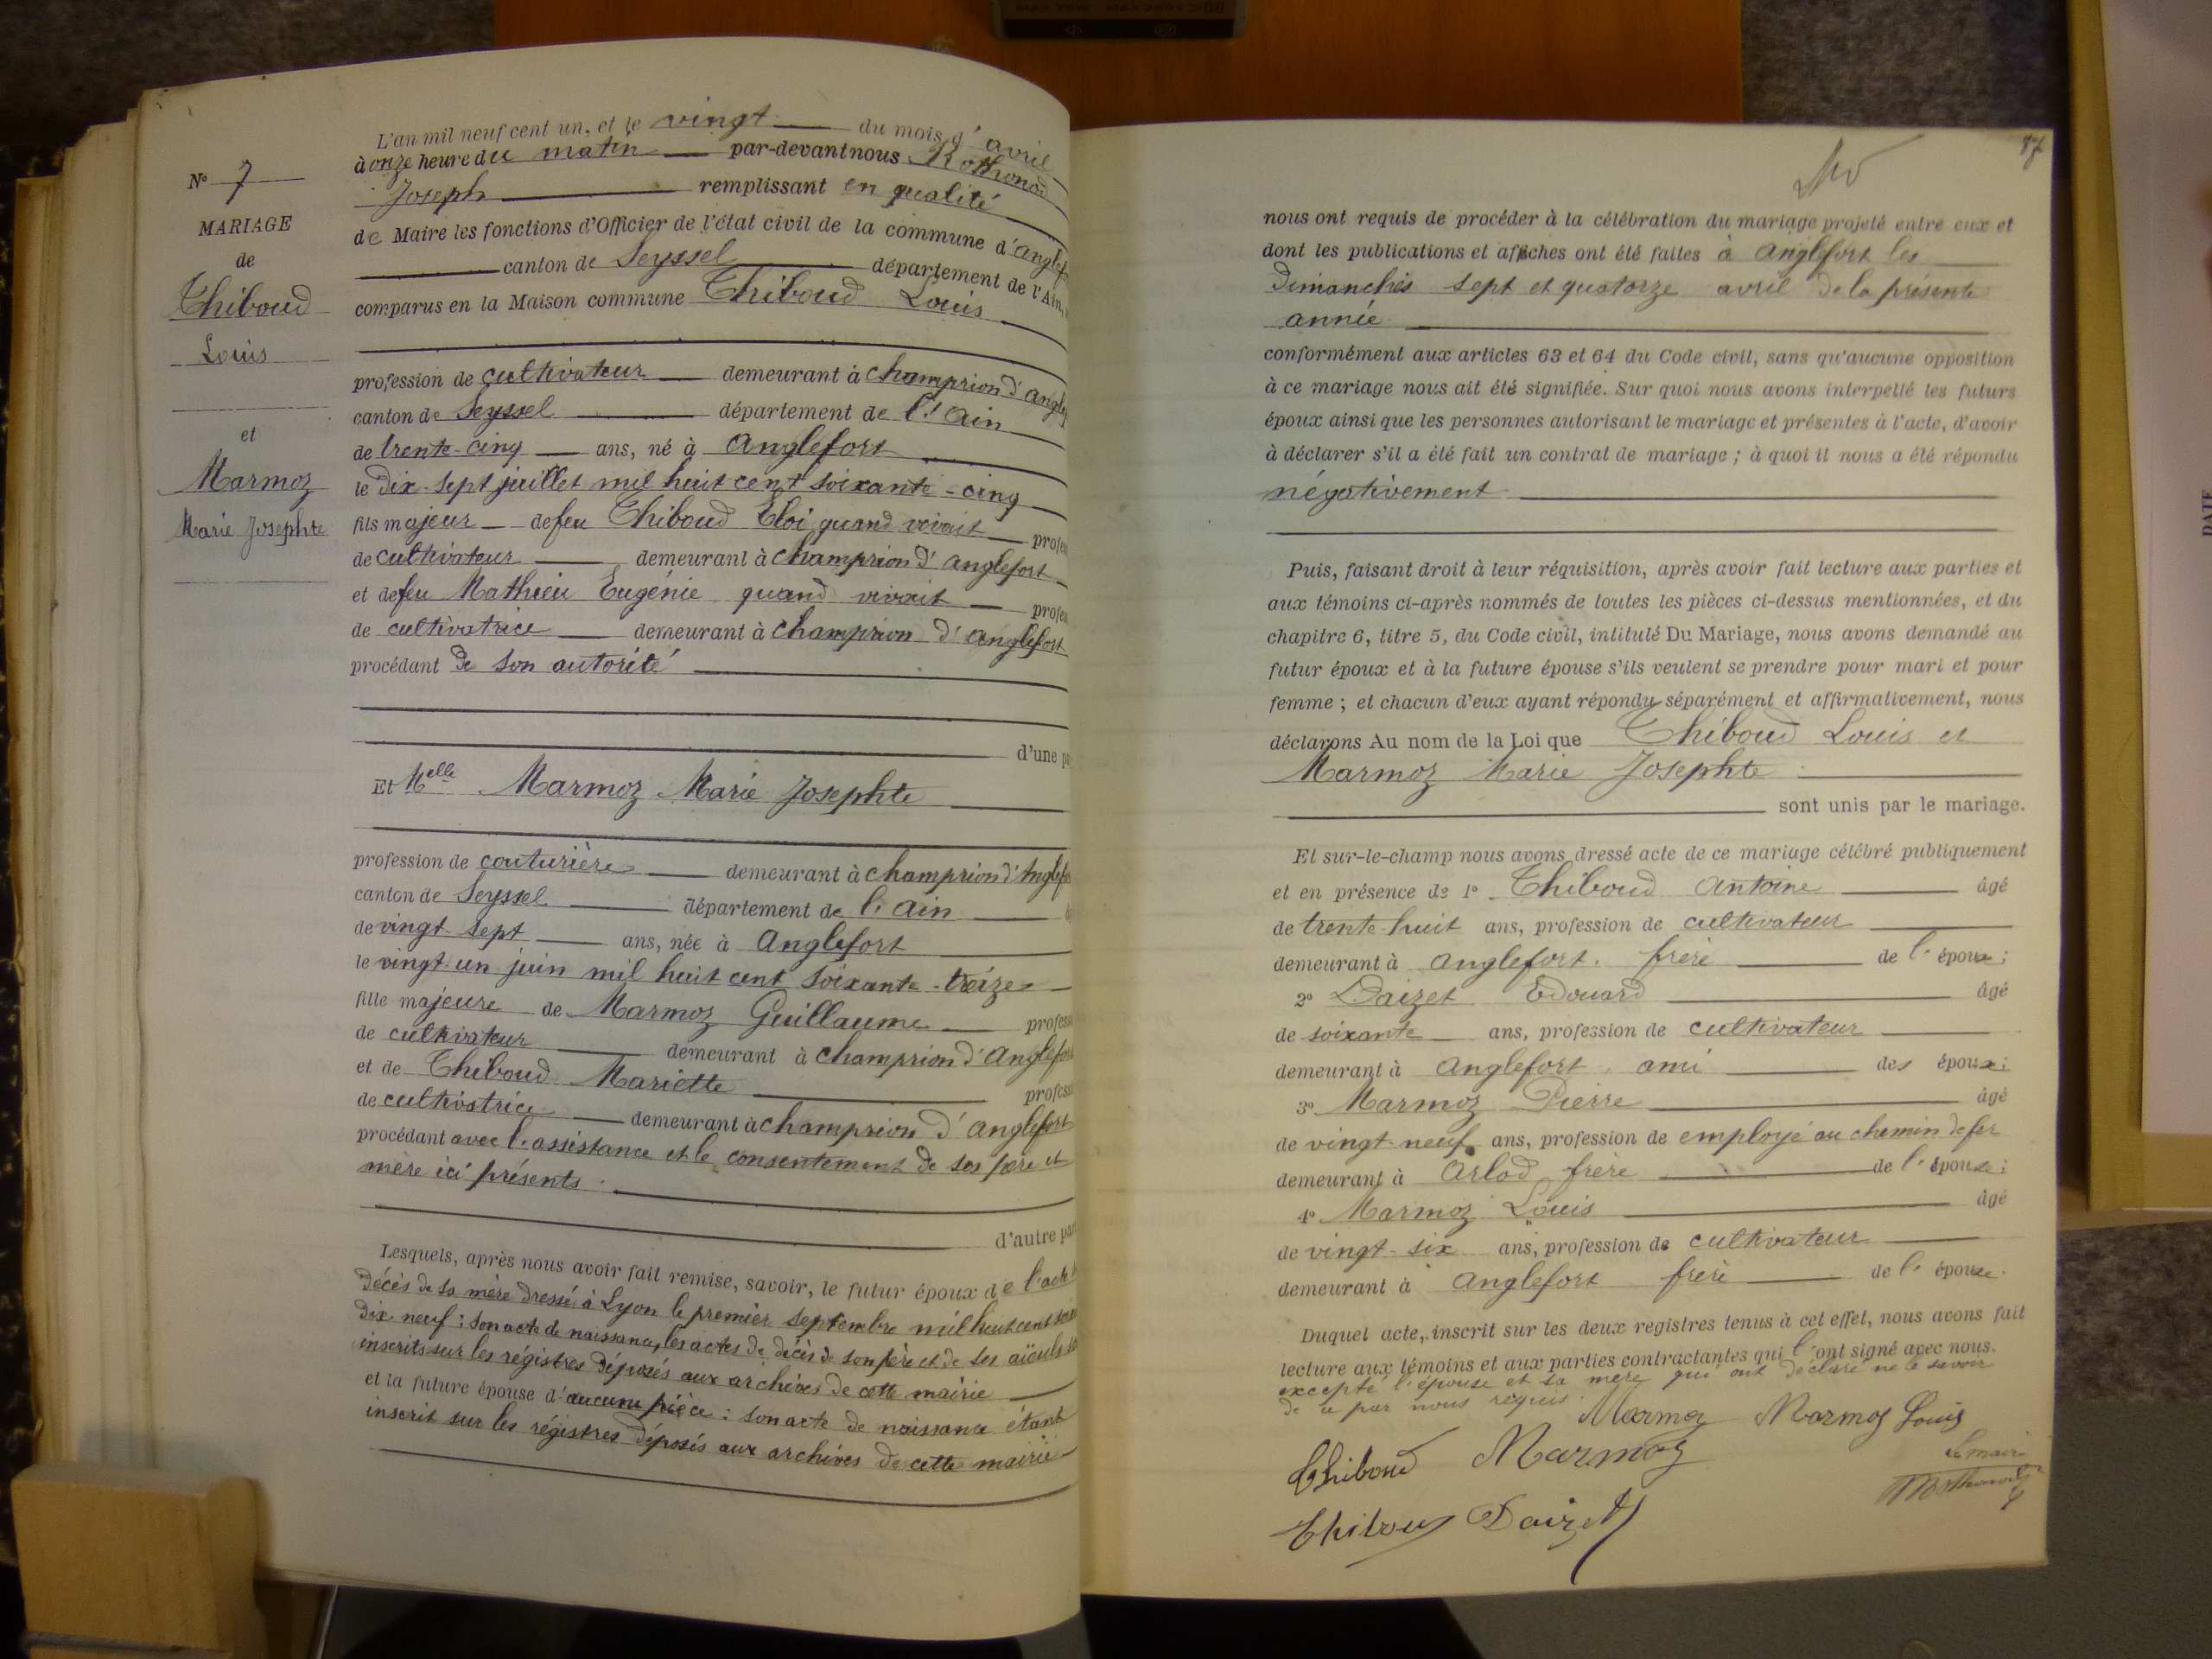 N° 7
MARIAGE
de
Thiboud
Louis
et
Marmoz
Marie Josephte
L'an mil neuf cent un, et le vingt du mois d'avril
à onze heure du matin par-devant nous Rothonod
Joseph remplissant en qualité
de Maire les fonctions d'Officier de l'état civil de la commune d'Anglef
canton de Seyssel département de l'Ain,
comparus en la Maison commune Thiboud Louis
profession de cultivateur demeurant à Champrion d'Anglef
canton de Seyssel département de l'Ain
de trente-cinq ans, né à Anglefort
le dix-sept juillet mil huit cent soixante-cinq
fils majeur de feu Thiboud Eloi quand vivait profes
de cultivateur demeurant à Champrion d'Anglefort
et de feu Mathieu Eugénie quand vivait profes
de cultivatrice demeurant à Champrion d'Anglefort
procédant de son autorité
d'une pa
Et Melle Marmoz Marie Josephte
profession de couturière demeurant à Champrion d'Anglefo
canton de Seyssel département de l'Ain
de vingt-sept ans, née à Anglefort
le vingt-un juin mil huit cent soixante-treize
fille majeure de Marmoz Guillaume profess
de cultivateur demeurant à Champrion d'Anglefort
et de Thiboud Mariette profess
de cultivatrice demeurant à Champrion d'Anglefort
procédant avec l'assistance et le consentement de ses père et
mère ici présents.
d'autre par
Lesquels, après nous avoir fait remise, savoir, le futur époux de l'acte
décès de sa mère dressé à Lyon le premier septembre mil huit cent soix
dix neuf; son acte de naissance, les actes de décès de son père et de ses aïeuls
inscrits sur les régistres déposés aux archives de cette mairie
et la future épouse d'aucune pièce: son acte de naissance étant
inscrit sur les régistres déposés aux archives de cette mairie
87
nous ont requis de procéder à la célébration du mariage projeté entre eux et
dont les publications et affiches ont été faites à Anglefort les
Dimanches sept et quatorze avril de la présente
année
conformément aux articles 63 et 64 du Code civil, sans qu'aucune opposition
à ce mariage nous ait été signifiée. Sur quoi nous avons interpellé les futurs
époux ainsi que les personnes autorisant le mariage et présentes à l'acte, d'avoir
à déclarer s'il a été fait un contrat de mariage; à quoi il nous a été répondu
négativement
Puis, faisant droit à leur réquisition, après avoir fait lecture aux parties et
aux témoins ci-après nommés de toutes les pièces ci-dessus mentionnées, et du
chapitre 6, titre 5, du Code civil, intitulé Du Mariage, nous avons demandé au
futur époux et à la future épouse s'ils veulent se prendre pour mari et pour
femme; et chacun d'eux ayant répondu séparément et affirmativement, nous
déclarons Au nom de la Loi que Thiboud Louis et
Marmoz Marie Josephte
sont unis par le mariage.
Et sur-le-champ nous avons dressé acte de ce mariage célébré publiquement
et en présence de 1° Thiboud Antoine âgé
de trente-huit ans, profession de cultivateur
demeurant à Anglefort. frère de l'époux;
2° Daizet Edouard âgé
de soixante ans, profession de cultivateur
demeurant à Anglefort ami des époux;
3° Marmoz Pierre âgé
de vingt-neuf ans, profession de employé au chemin de fer
demeurant à Arlod frère de l'épouse;
4° Marmoz Louis âgé
de vingt-six ans, profession de cultivateur
demeurant à Anglefort frère de l'épouse.
Duquel acte, inscrit sur les deux registres tenus à cet effet, nous avons fait
lecture aux témoins et aux parties contractantes qui l'ont signé avec nous.
excepté l'épouse et sa mère qui ont déclaré ne le savoir
de ce par nous requis.
Marmoz Marmoz Louis
Thiboud Marmoz Le maire
Rothonod
Thiboud Daizet
DATE